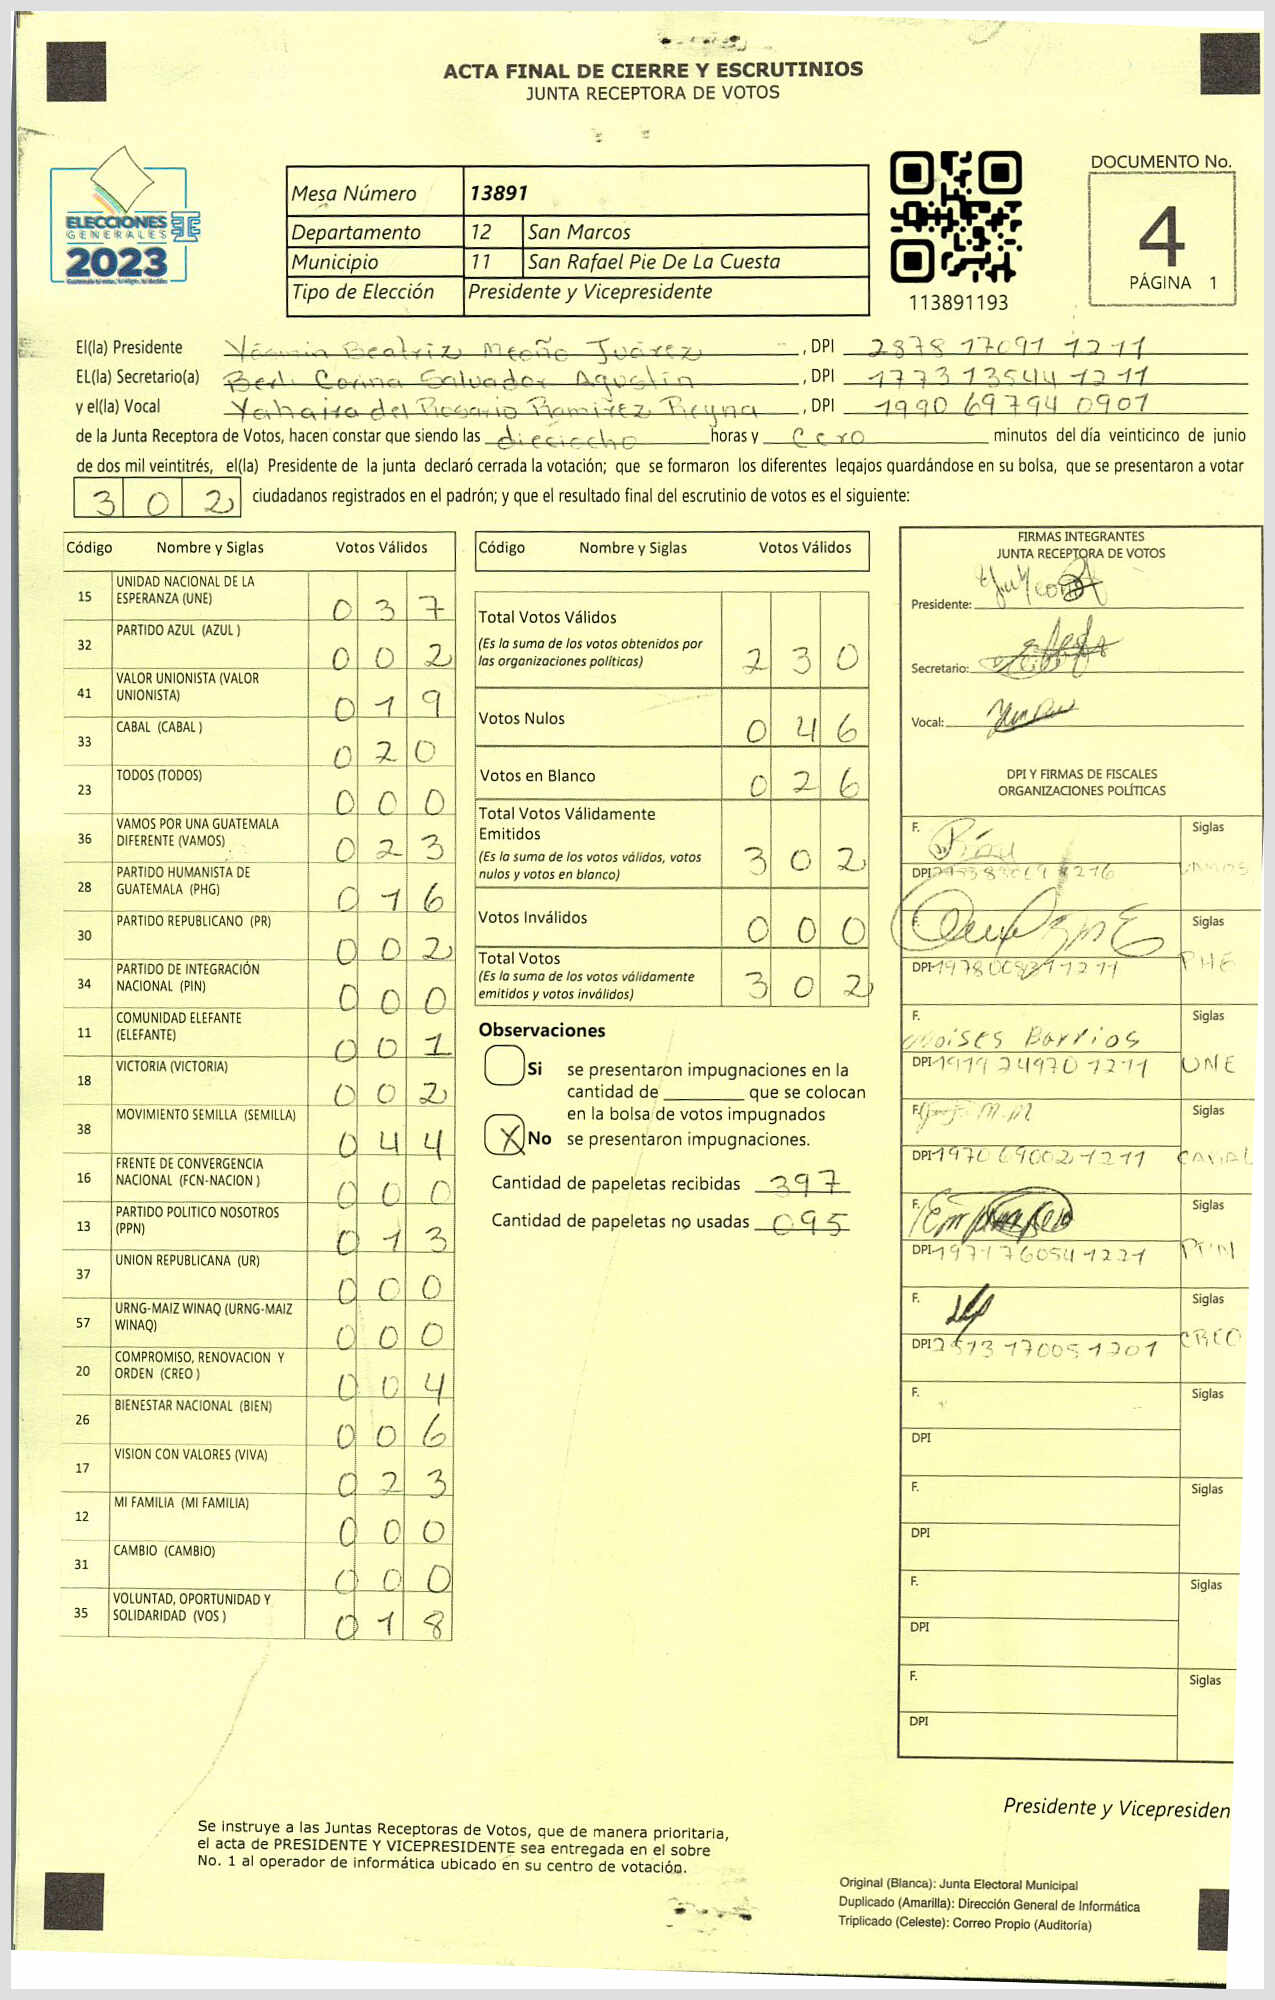 ACTA FINAL DE CIERRE Y ESCRUTINIOS
JUNTA RECEPTORA DE VOTOS
ELECCIONES
GENERALES
2023
Mesa Número 13891
Departamento 12 San Marcos
Municipio 11 San Rafael Pie De La Cuesta
Tipo de Elección Presidente y Vicepresidente
113891193
DOCUMENTO No.
4
PÁGINA 1
El(la) Presidente Yásmin Beatriz Meoño Juárez, DPI 2878 17091 1211
EL(la) Secretario(a) Corina Salvador Agustín, DPI 1773 13544 1211
y el(la) Vocal Yahaira del Rosario Ramírez Reyna, DPI 1990 69794 0901
de la Junta Receptora de Votos, hacen constar que siendo las dieciocho horas y cero minutos del día veinticinco de junio
de dos mil veintitrés, el(la) Presidente de la junta declaró cerrada la votación; que se formaron los diferentes legajos guardándose en su bolsa, que se presentaron a votar
302 ciudadanos registrados en el padrón; y que el resultado final del escrutinio de votos es el siguiente:
Código Nombre y Siglas Votos Válidos
15 UNIDAD NACIONAL DE LA ESPERANZA (UNE) 037
32 PARTIDO AZUL (AZUL ) 002
41 VALOR UNIONISTA (VALOR UNIONISTA) 019
33 CABAL (CABAL ) 020
23 TODOS (TODOS) 000
36 VAMOS POR UNA GUATEMALA DIFERENTE (VAMOS) 023
28 PARTIDO HUMANISTA DE GUATEMALA (PHG) 016
30 PARTIDO REPUBLICANO (PR) 002
34 PARTIDO DE INTEGRACIÓN NACIONAL (PIN) 000
11 COMUNIDAD ELEFANTE (ELEFANTE) 001
18 VICTORIA (VICTORIA) 002
38 MOVIMIENTO SEMILLA (SEMILLA) 044
16 FRENTE DE CONVERGENCIA NACIONAL (FCN-NACION ) 000
13 PARTIDO POLITICO NOSOTROS (PPN) 013
37 UNION REPUBLICANA (UR) 000
57 URNG-MAIZ WINAQ (URNG-MAIZ WINAQ) 000
20 COMPROMISO, RENOVACION Y ORDEN (CREO ) 004
26 BIENESTAR NACIONAL (BIEN) 006
17 VISION CON VALORES (VIVA) 023
12 MI FAMILIA (MI FAMILIA) 000
31 CAMBIO (CAMBIO) 000
35 VOLUNTAD, OPORTUNIDAD Y SOLIDARIDAD (VOS ) 018
Código Nombre y Siglas Votos Válidos
Total Votos Válidos 230
(Es la suma de los votos obtenidos por
las organizaciones políticas)
Votos Nulos 046
Votos en Blanco 026
Total Votos Válidamente
Emitidos 302
(Es la suma de los votos válidos, votos
nulos y votos en blanco)
Votos Inválidos 000
Total Votos 302
(Es la suma de los votos válidamente
emitidos y votos inválidos)
Observaciones
Si se presentaron impugnaciones en la
cantidad de ________ que se colocan
en la bolsa de votos impugnados
X No se presentaron impugnaciones.
Cantidad de papeletas recibidas 397
Cantidad de papeletas no usadas 095
FIRMAS INTEGRANTES
JUNTA RECEPTORA DE VOTOS
Presidente:
Secretario:
Vocal:
DPI Y FIRMAS DE FISCALES
ORGANIZACIONES POLÍTICAS
F. Siglas
DPI VAMOS
F. Siglas
DPI PHG
F. Moises Barrios Siglas
DPI 1919 24970 1211 UNE
F. Siglas
DPI 1970 69002 1211
F. Siglas
DPI 1971 76054 1221
F. Siglas
DPI 2513 17005 1201 CREO
F. Siglas
DPI
F. Siglas
DPI
F. Siglas
DPI
F. Siglas
DPI
Presidente y Vicepresiden
Se instruye a las Juntas Receptoras de Votos, que de manera prioritaria,
el acta de PRESIDENTE Y VICEPRESIDENTE sea entregada en el sobre
No. 1 al operador de informática ubicado en su centro de votación.
Original (Blanca): Junta Electoral Municipal
Duplicado (Amarilla): Dirección General de Informática
Triplicado (Celeste): Correo Propio (Auditoría)